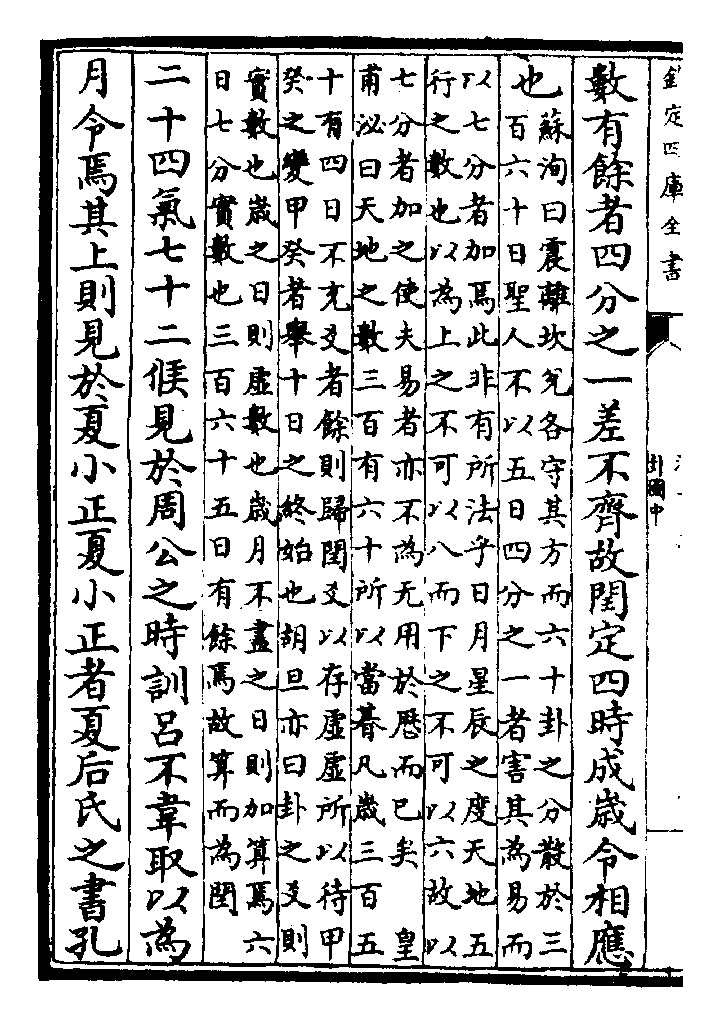 欽定四庫全書
卦圖中
數有餘者四分之一差不齊故閏定四時成歲令相應
也
蘇洵曰震離坎兌各守其方而六十卦之分散於三
百六十日聖人不以五日四分之一者害其為易而
以七分者加焉此非有所法乎日月星辰之度天地五
行之數也以為上之不可以八而下之不可以六故以
七分者加之使夫易者亦不為无用於厯而已矣　皇
甫泌曰天地之數三百有六十所以當朞凡歲三百五
十有四日不充爻者餘則歸閏爻以存虛虛所以待甲
癸之變甲癸者舉十日之終始也胡旦亦曰卦之爻則
實數也歲之日則虛數也歲月不盡之日則加算焉六
日七分實數也三百六十五日有餘焉故算而為閏
二十四氣七十二候見於周公之時訓呂不韋取以為
月令焉其上則見於夏小正夏小正者夏后氏之書孔